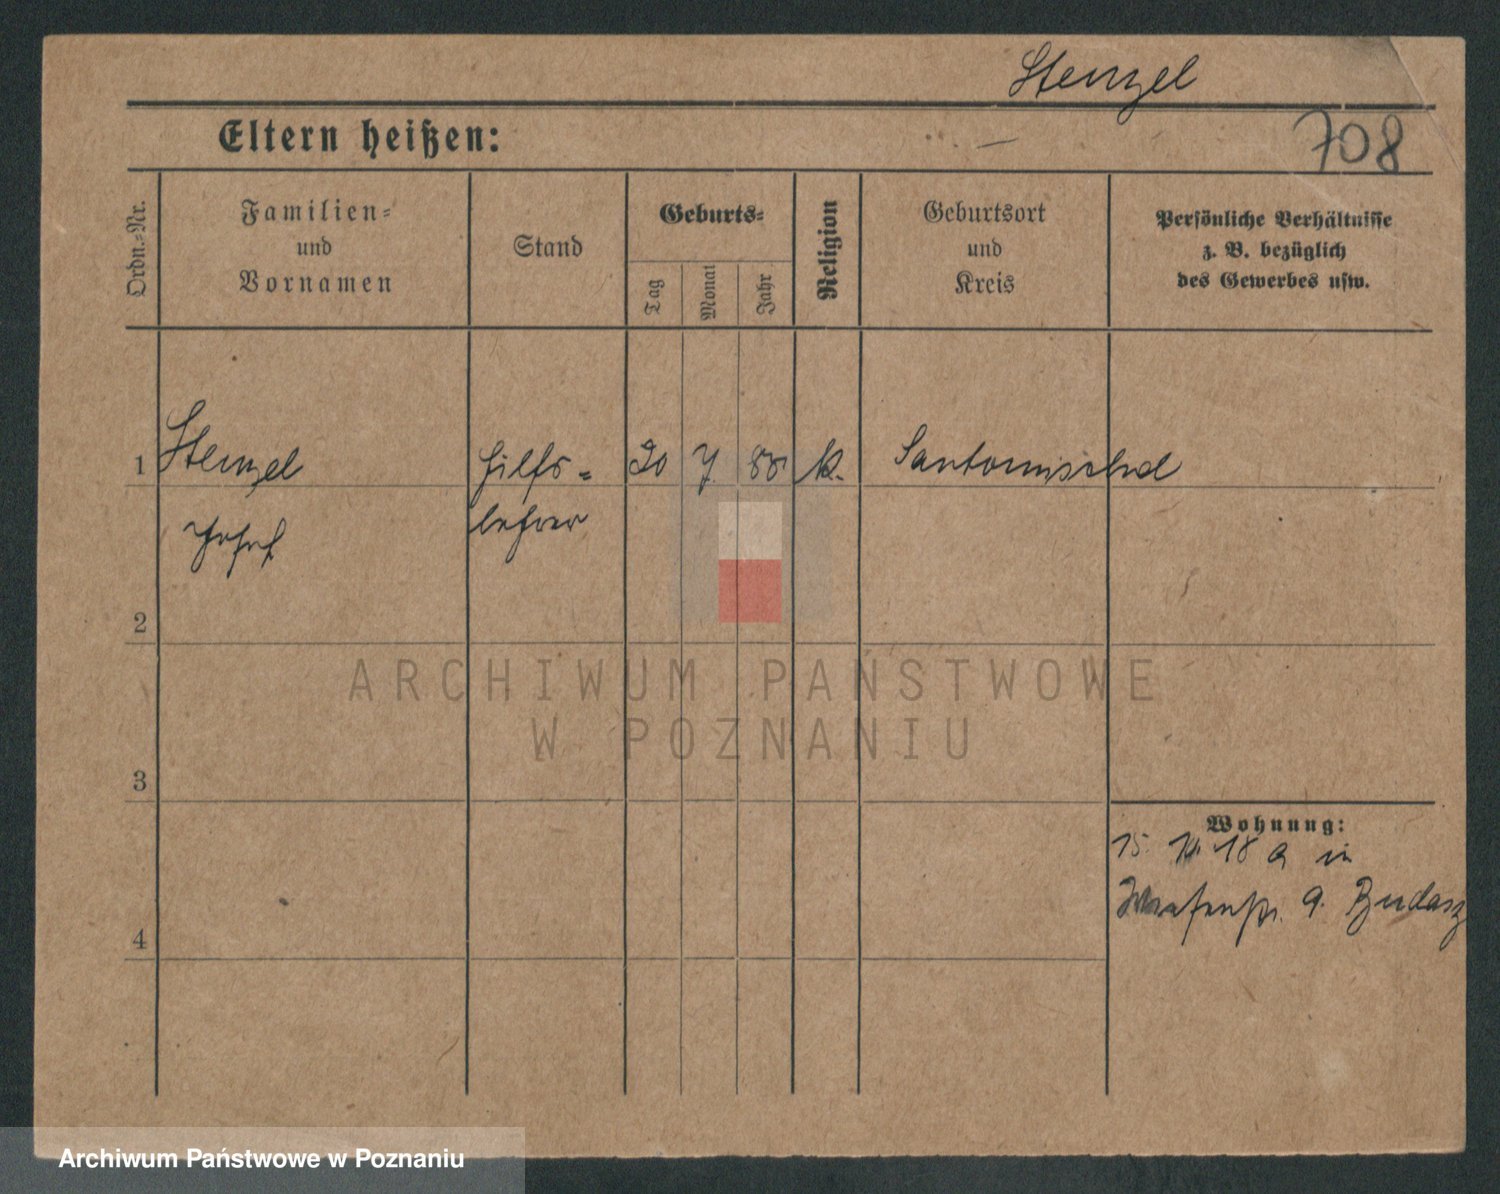 Stenzel
Eltern heißen:
708
Ordn.-Nr.
Familien-
und
Vornamen
Stand
Geburts-
Tag
Monat
Jahr
Religion
Geburtsort
und
Kreis
Persönliche Verhältnisse
z. B. bezüglich
des Gewerbes usw.
1 Stenzel Hilfs= 20 7 88 k. Santomischel
Josef lehrer
2
ARCHIWUM PAŃSTWOWE
W POZNANIU
3
Wohnung:
15. 18 a in
9. Budasz
4
Archiwum Państwowe w Poznaniu